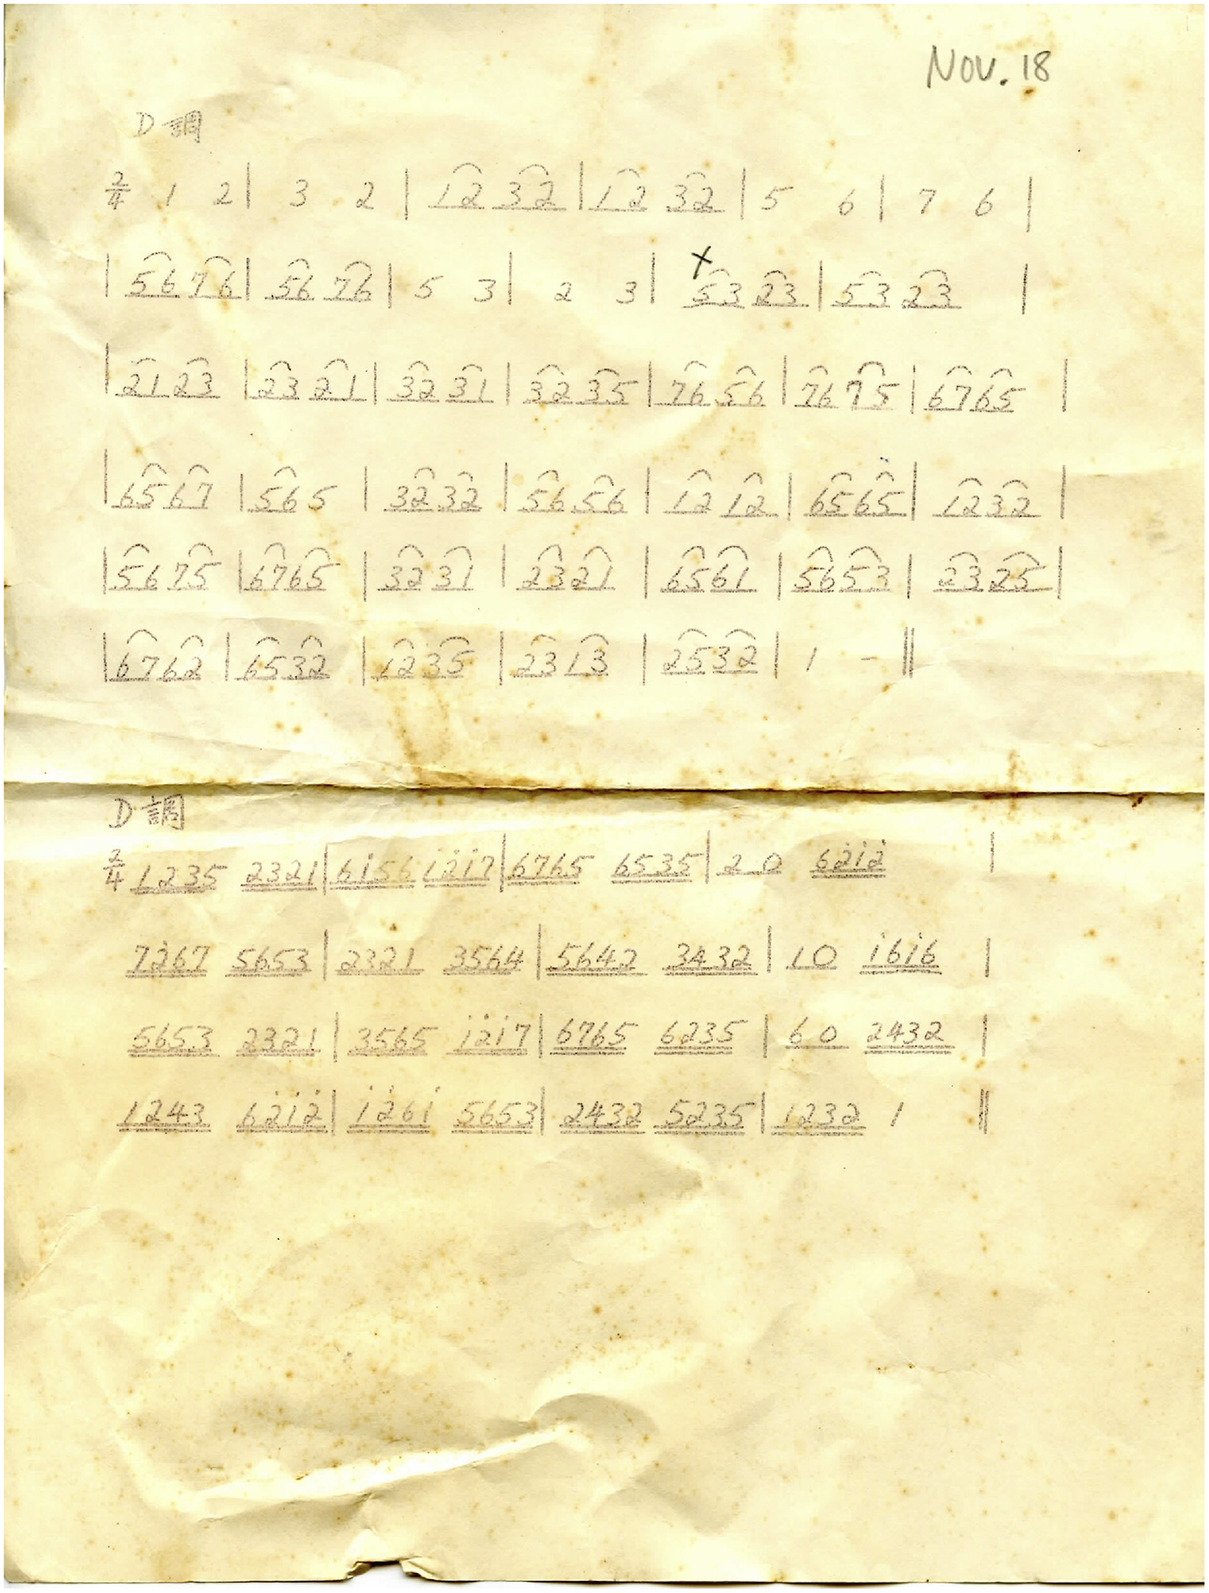 Nov. 18
D 調
2/4 1 2 | 3 2 | 12 32 | 12 32 | 5 6 | 7 6 |
| 56 76 | 56 76 | 5 3 | 2 3 | x 53 23 | 53 23 |
| 21 23 | 23 21 | 32 31 | 32 35 | 76 56 | 76 75 | 6765 |
| 6567 | 565 | 3232 | 56 56 | 12 12 | 6565 | 1232 |
| 5675 | 6765 | 3231 | 2321 | 6561 | 5653 | 2325 |
| 6762 | 6532 | 1235 | 2313 | 2532 | 1 - ||
D 調
2/4 1235 2321 | 6i56 i2̇i7 | 6765 6535 | 2 0 62̇i2̇ |
72̇67 5653 | 2321 3564 | 5642 3432 | 10 i6i6 |
5653 2321 | 3565 i2̇i7 | 6765 6235 | 60 2432 |
1243 62̇i2̇ | i2̇6i 5653 | 2432 5235 | 1232 1 ||